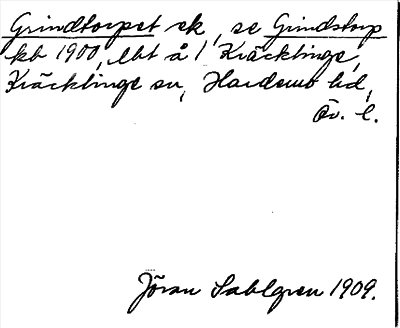 Grindtorpet sk, se Grindstorp
kb 1900, lht å 1 Kräcklinge,
Kräcklinge sn, Hardemo hd,
Ör. l.
Jöran Sahlgren 1909.